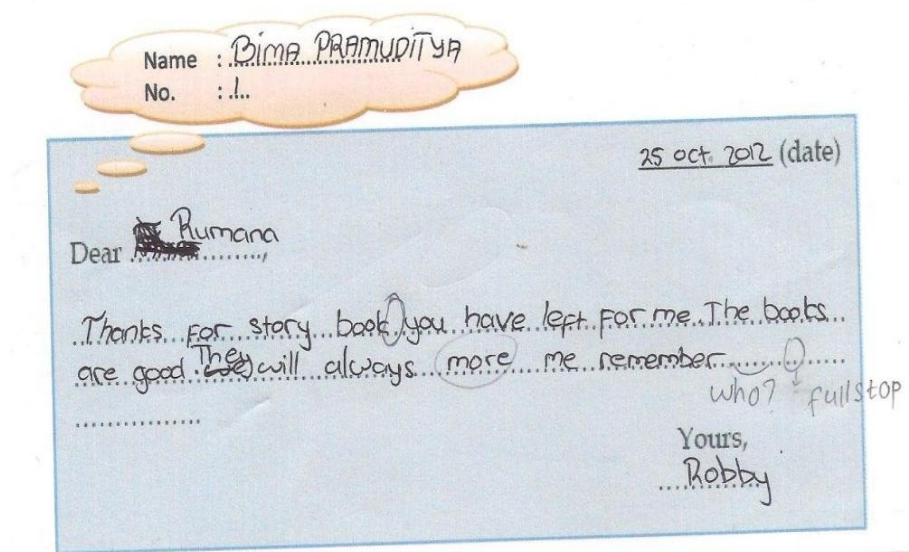 Name : Bima PRAMUDITYA
No. : 1
25 oct. 2012 (date)
Dear Rumana,
Thanks For story book you have left for me. The books
are good They will always more me remember
who? fullstop
Yours,
Robby